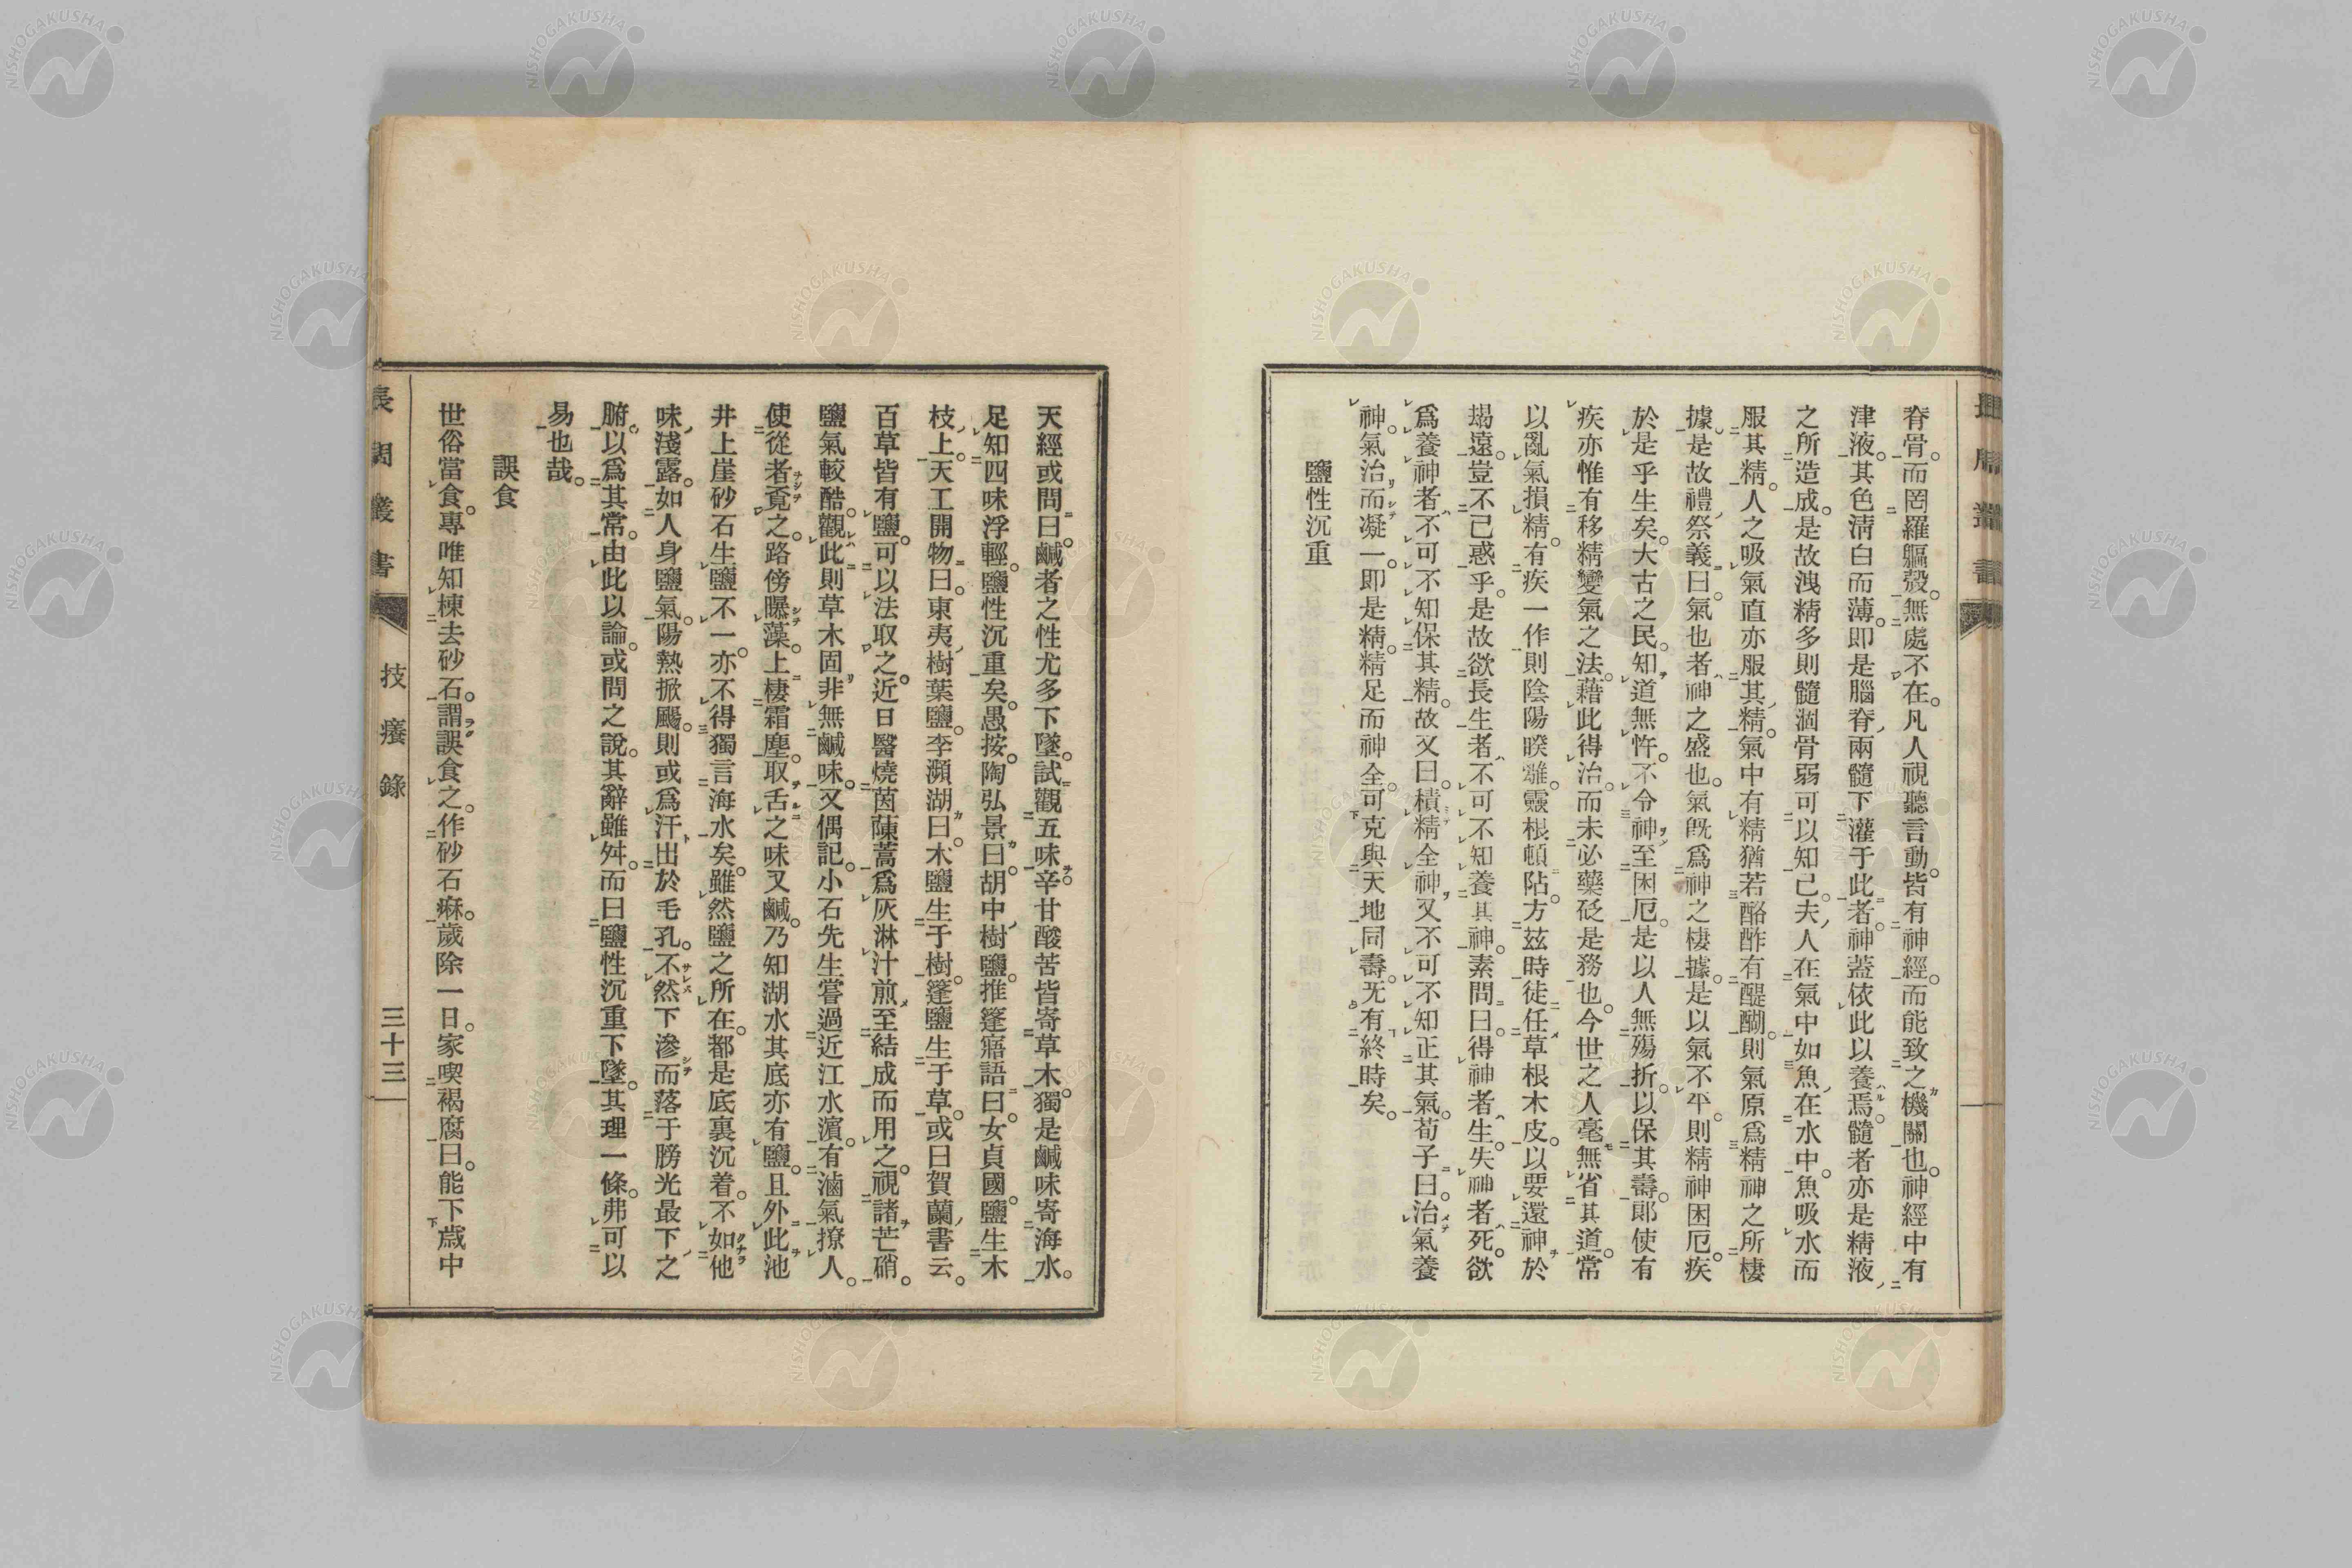 脊骨。而罔羅軀殼。無處不在。凡人視聽言動。皆有神經。而能致之機關也。神經中有
津液。其色淸白而薄。即是腦脊兩髓下灌于此者。神蓋依此以養焉。髓者亦是精液
之所造成。是故洩精多則髓涸骨弱可以知已。夫人在氣中如魚在水中。魚吸水而
服其精。人之吸氣直亦服其精。氣中有精猶若酪酢有醍醐。則氣原爲精神之所棲
據。是故禮祭義曰。氣也者神之盛也。氣旣爲神之棲據。是以氣不平。則精神困厄。疾
於是乎生矣。大古之民。知道無忤。不令神至困厄。是以人無殤折。以保其壽。郞使有
疾亦惟有移精變氣之法。藉此得治。而未必藥砭是務也。今世之人毫無省其道。常
以亂氣損精。有疾一作則陰陽暌離。靈根頓阽。方茲時徒任草根木皮。以要還神於
竭遠。豈不已惑乎。是故欲長生者。不可不知養其神。素問曰。得神者生。失神者死。欲
爲養神者。不可不知保其精。故又曰。積精全神。又不可不知正其氣。荀子曰。治氣養
神。氣治而凝一。即是精。精足而神全。可克與天地同壽。无有終時矣。
鹽性沉重
天經或問曰。鹹者之性尤多下墜。試觀五味。辛甘酸苦皆寄草木。獨是鹹味寄海水。
足知四味浮輕。鹽性沉重矣。愚按。陶弘景曰。胡中樹鹽。推篷寤語曰。女貞國鹽生木
枝上。天工開物曰。東夷樹葉鹽。李瀕湖曰。木鹽生于樹。篷鹽生于草。或曰賀蘭書云。
百草皆有鹽。可以法取之。近日醫燒茵蔯蒿爲灰淋汁煎至結成而用之。視諸芒硝。
鹽氣較酷。觀此則草木固非無鹹味。又偶記。小石先生嘗過近江水濵。有滷氣撩人。
使從者覔之。路傍曝藻。上棲霜塵。取舌之味又鹹。乃知湖水其底亦有鹽。且外此池
井上崖砂石生鹽不一。亦不得獨言海水矣。雖然鹽之所在。都是底裏沉着。不如他
味淺露。如人身鹽氣。陽熱掀颺。則或爲汗出於毛孔。不然下滲而落于膀光最下之
腑。以爲其常。由此以論。或問之說。其辭雖舛。而曰鹽性沉重下墜。其理一條。弗可以
易也哉。
誤食
世俗當食。專唯知楝去砂石。謂誤食之。作砂石痳。歲除一日。家喫褐腐曰。能下歲中
長周叢書
技癢錄
三十三